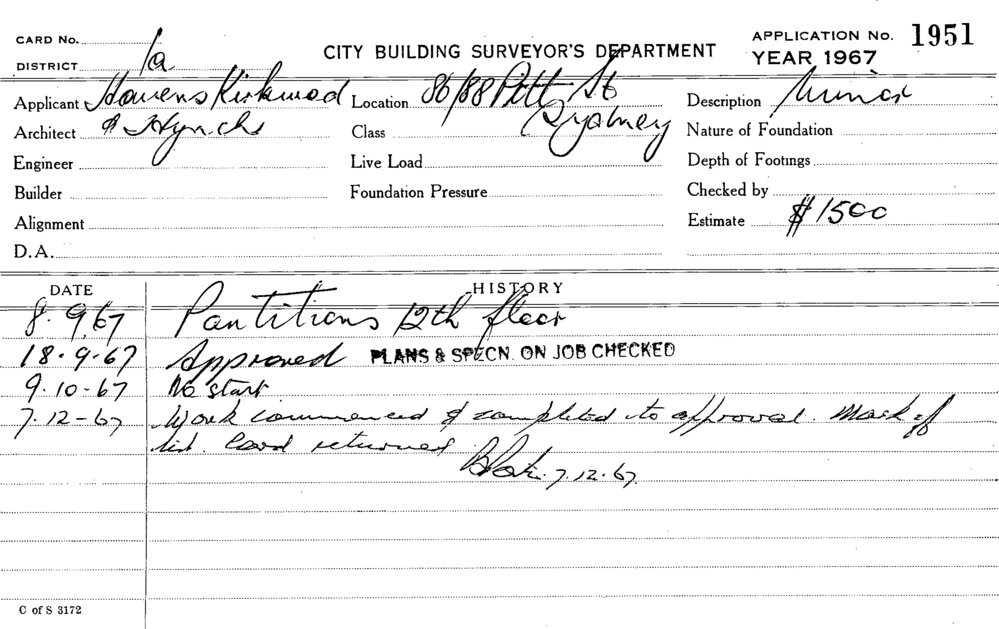 CARD No.
DISTRICT 1a
CITY BUILDING SURVEYOR'S DEPARTMENT
APPLICATION No. 1951
YEAR 1967
Applicant Kirkwood Location 86/88 Pitt St Description Minor
Architect & Class Sydney Nature of Foundation
Engineer Live Load Depth of Footings
Builder Foundation Pressure Checked by
Alignment Estimate $1500
D.A.
DATE HISTORY
8.9.67 Partitions 12th floor
18.9.67 Approved PLANS & SPECN. ON JOB CHECKED
9.10-67 No start
7.12-67 Work commenced & completed to approval. Mark off
list. Card returned
7.12.67.
C of S 3172